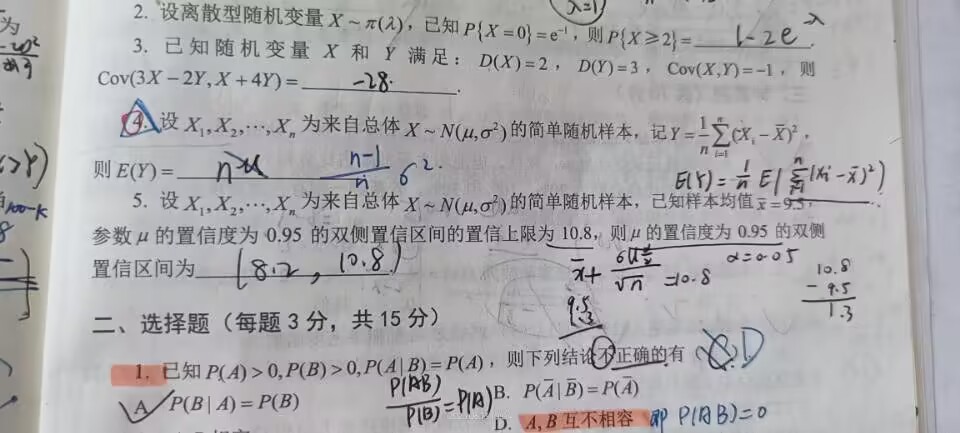 λ=1
2. 设离散型随机变量 X ~ π(λ)，已知 P{X = 0} = e⁻¹，则 P{X ≥ 2} = 1-2e^λ.
3. 已知随机变量 X 和 Y 满足：D(X) = 2， D(Y) = 3， Cov(X,Y) = -1，则
Cov(3X - 2Y, X + 4Y) = -28.
4. 设 X₁, X₂, ⋯, Xₙ 为来自总体 X ~ N(μ,σ²) 的简单随机样本，记 Y = 1/n ∑ᵢ₌₁ⁿ (Xᵢ - X̄)²，
则 E(Y) = n-1/n σ².
E(Y) = 1/n E(∑ (Xi - x̄)²)
5. 设 X₁, X₂, ⋯, Xₙ 为来自总体 X ~ N(μ,σ²) 的简单随机样本，已知样本均值 x̄ = 9.5，
参数 μ 的置信度为 0.95 的双侧置信区间的置信上限为 10.8，则 μ 的置信度为 0.95 的双侧
置信区间为 (8.2, 10.8)
=10.8
α=0.05
10.8
- 9.5
1.3
9.5
1.3
二、选择题（每题 3 分，共 15 分）
1. 已知 P(A) > 0, P(B) > 0, P(A|B) = P(A)，则下列结论不正确的有 D
A P(B|A) = P(B)
P(AB)/P(B) = P(A)
B. P(Ā|B̄) = P(Ā)
D. A, B 互不相容 即 P(AB)=0